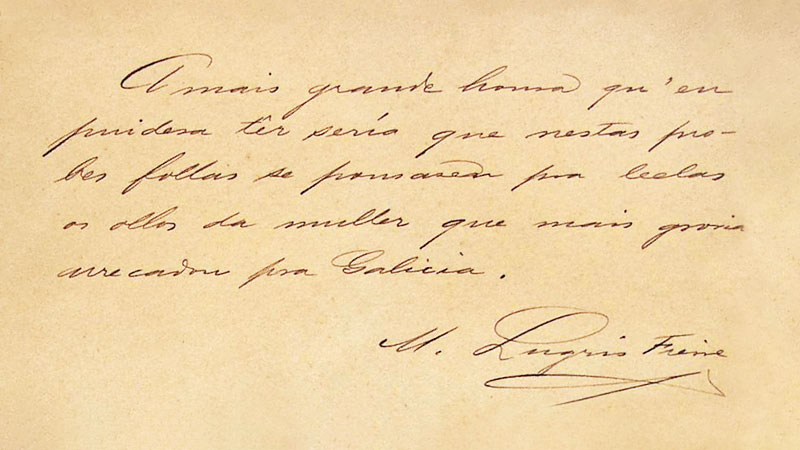 A mais grande honra qu'eu
puidera têr sería que nestas pro-
bes follas se pousasen pra leelas
os ollos da muller que mais groria
arrecadou pra Galicia.
M. Lugrís Freire